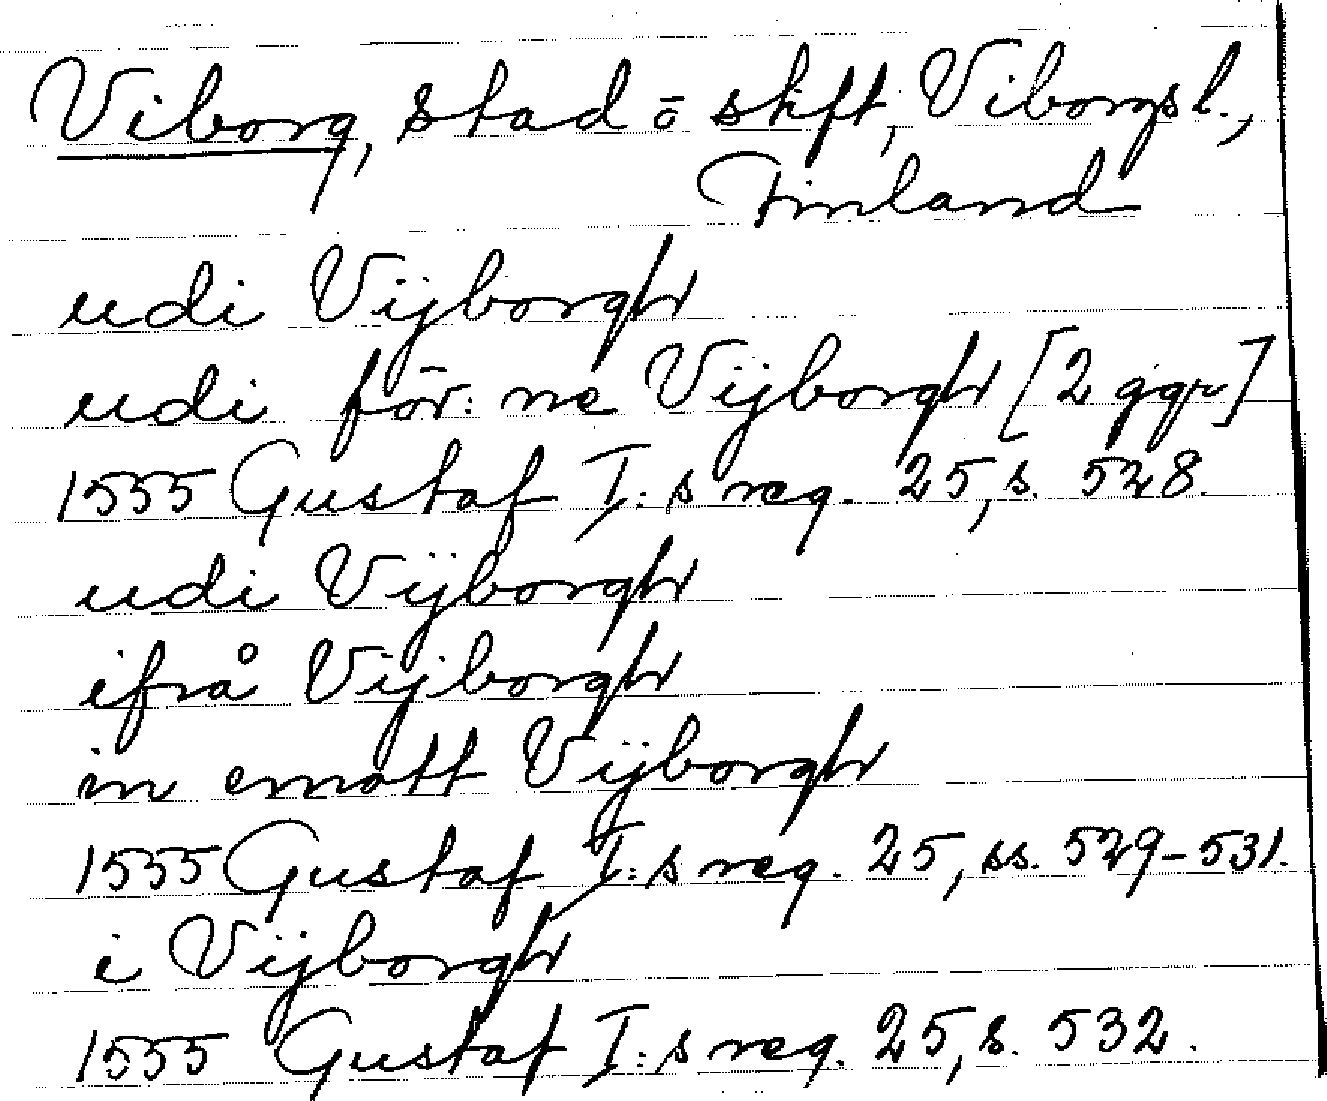 Viborg, stad o skft, Viborgs l.,
Finland
udi Vijborgh
udi för:ne Vijborgh [2 ggr]
1555 Gustaf I:s reg. 25, s. 528.
udi Vijborgh
ifrå Vijborgh
in emott Vijborgh
1555 Gustaf I:s reg. 25, ss. 529-531.
i Vijborgh
1555 Gustaf I:s reg. 25, s. 532.